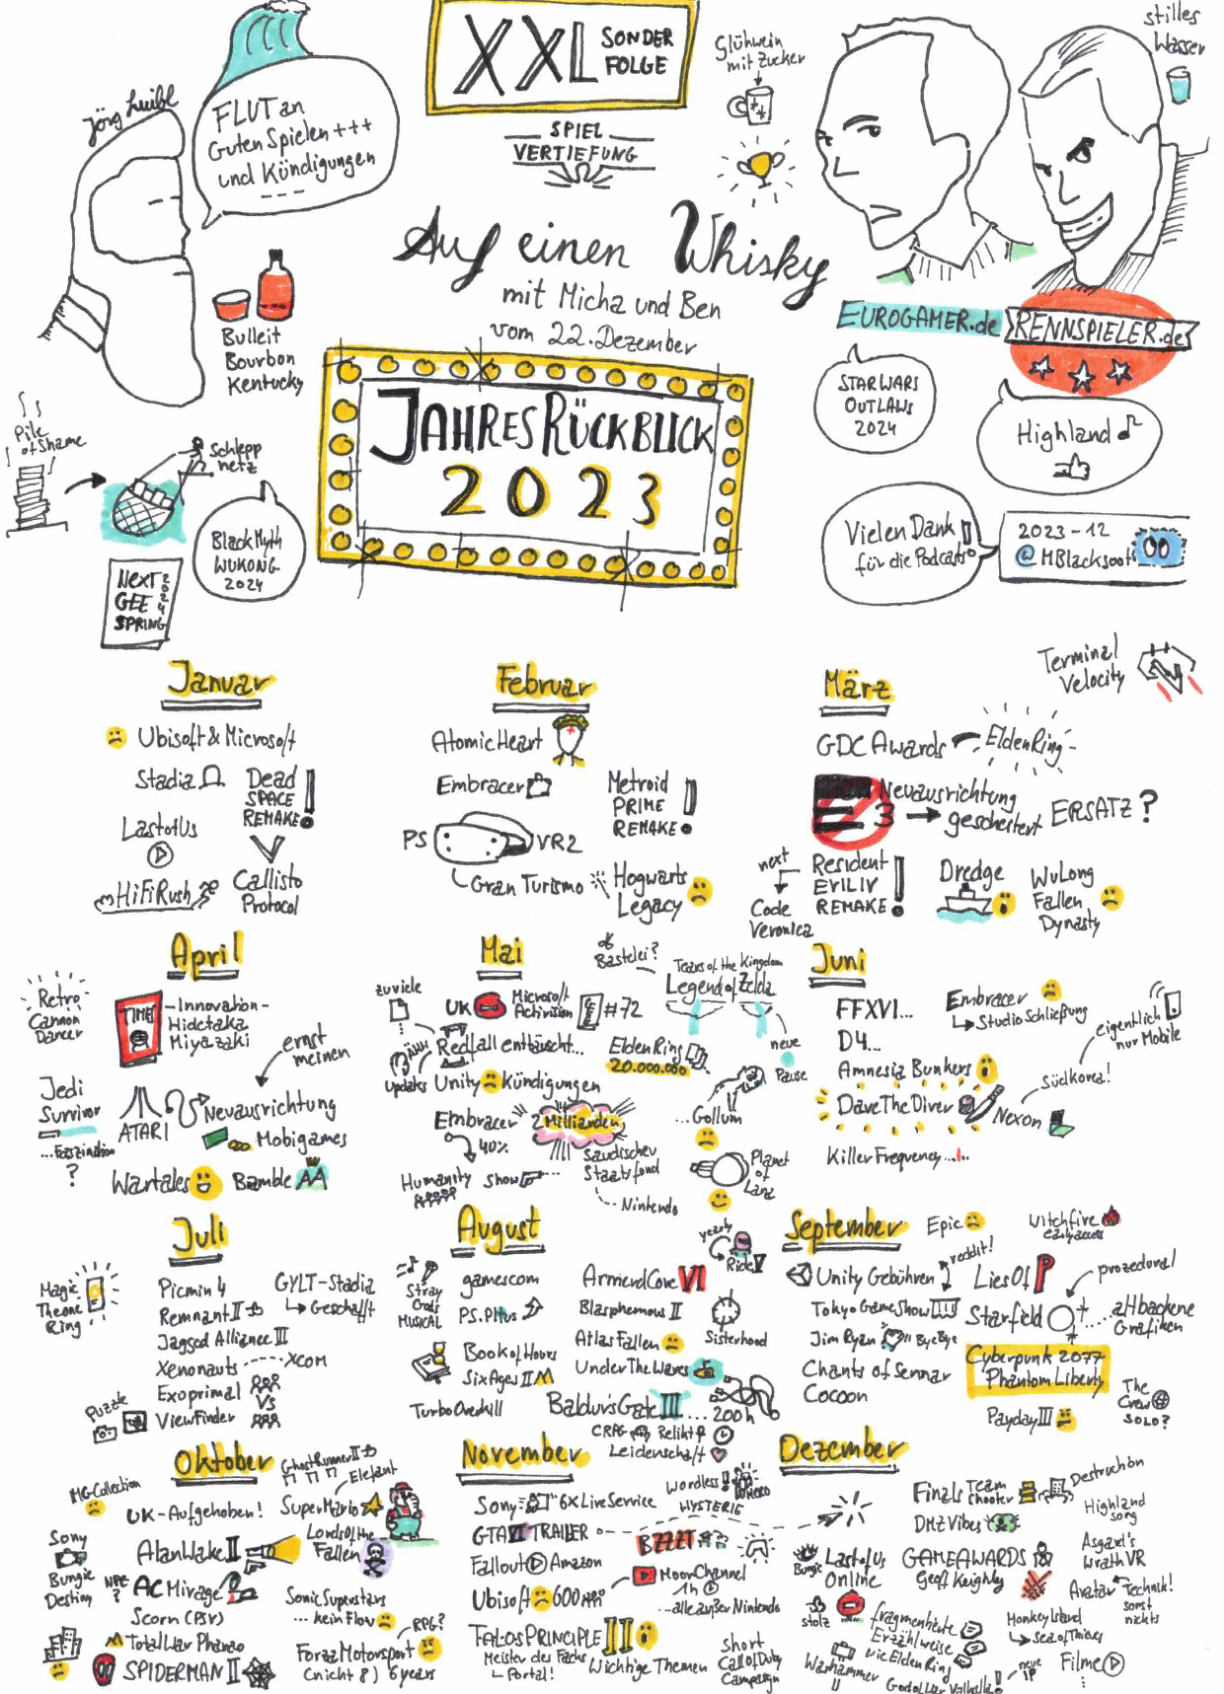 XXL SONDER
FOLGE
SPIEL
VERTIEFUNG
Jörg Luibl
FLUT an
Guten Spielen +++
und Kündigungen
---
Glühwein
mit Zucker
stilles
Wasser
Auf einen Whisky
mit Micha und Ben
vom 22. Dezember
Bulleit
Bourbon
Kentucky
EUROGAMER.de
RENNSPIELER.de
JAHRESRÜCKBLICK
2023
STAR WARS
OUTLAWS
2024
Highland
Pile
of Shame
Schlepp
netz
Black Myth
WUKONG
2024
NEXT
GEE
SPRING
2024
Vielen Dank!
für die Podcasts
2023-12
@MBlacksoot
Terminal
Velocity
Januar
Ubisoft & Microsoft
Stadia
Dead
SPACE
REMAKE!
Last of Us
HiFi Rush
Callisto
Protocol
Februar
Atomic Heart
Embracer
Metroid
PRIME
REMAKE!
PS VR2
Gran Turismo
Hogwarts
Legacy
März
GDC Awards
Elden Ring
E3
Neuausrichtung
gescheitert
ERSATZ?
next
Code
Veronica
Resident
EVIL IV
REMAKE!
Dredge
WuLong
Fallen
Dynasty
April
Retro
Cannon
Dancer
TIME
-Innovation-
Hidetaka
Miyazaki
ernst
meinen
Jedi
Survivor
...Faszination
?
ATARI
Neuausrichtung
Mobigames
Wartales
Bamble AA
Mai
zuviele
Updates
UK
Microsoft
Activision
#72
Bastelei?
Tears of the Kingdom
Legend of Zelda
neue
Pause
Redfall enttäuscht...
Elden Ring
20.000.000
Unity Kündigungen
Embracer
40%
2 Milliarden
Saudischer
Staatsfond
Nintendo
...Gollum
Humanity
Show
Planet
of Lana
Juni
FFXVI...
D4...
Embracer
Studio Schließung
eigentlich
nur Mobile
Amnesia Bunkers
Südkorea!
Dave The Diver
Nexon
Killer Frequency...
Juli
Magic
The one
Ring
Picmin 4
Remnant II
Jagged Alliance III
Xenonauts ---- XCOM
Exoprimal
VS
ViewFinder
Puzzle
GYLT-Stadia
Geschafft
August
Stray
Gods
MUSICAL
gamescom
PS.Plus
Book of Hours
Six Ages II
Turbo Overkill
yearly
Ride V
Armored Core VI
Blasphemous II
Sisterhood
Atlas Fallen
Under The Waves
Baldurs Gate III ... 200h
CRPG
Relikt
Leidenschaft
September
Epic
Witchfire
early access
Unity Gebühren
reddit!
Lies Of P
prozedural
Tokyo Game Show
Starfield
altbackene
Grafiken
Jim Ryan
Bye Bye
Chants of Sennar
Cocoon
Cyberpunk 2077
Phantom Liberty
Payday III
The
Crew
SOLO?
Oktober
MG-Collection
UK-Aufgehoben!
Ghostrunner II
Elefant
Super Mario
Sony
Bungie
Destiny
Alan Wake II
Lords of the
Fallen
NPE
?
AC Mirage
Scorn (PS5)
Total War Pharao
SPIDERMAN II
Sonic Superstars
...kein Flow
RPG?
Forza Motorsport
(nicht 8) 6 years
November
Sony
6x Live Service
wordless!
HYSTERIE
GTA VI TRAILER
BZZZT
Fallout
Amazon
Moon Channel
1h
...alle außer Nintendo
Ubisoft 600
TALOS PRINCIPLE II
Meister des Fachs
Portal!
Wichtige Themen
short
Call of Duty
Campaign
Dezember
Finals Team
shooter
Destruction
DMZ Vibes
Highland
song
Bungie
Last of Us
Online
GAME AWARDS
Geoff Keighley
Asgard's
Wrath VR
stolz
fragmentierte
Erzählweise
wie Elden Ring
Avatar
Technik!
sonst
nichts
Monkey Island
Sea of Thieves
Warhammer
God of War Valhalla!
neue
IP
Filme